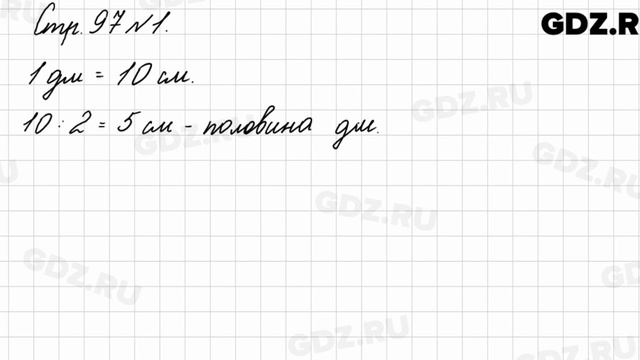 Стр. 97 №1.
GDZ.R
1 дм = 10 см.
10 : 2 = 5 см - половина дм.
GDZ.RU
GDZ.RU
GDZ.RU
GDZ.RU
GDZ.RU
GDZ.RU